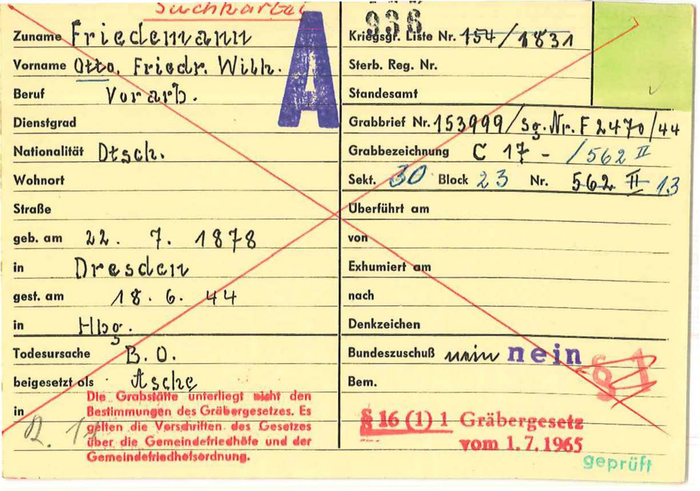 Suchkartei
Zuname Friedemann
Vorname Otto, Friedr. Wilh.
Beruf Vorarb.
Dienstgrad
Nationalität Dtsch.
Wohnort
Straße
geb. am 22. 7. 1878
in Dresden
gest. am 18. 6. 44
in Hbg.
Todesursache B.O.
beigesetzt als Asche
in
Die Grabstätte unterliegt nicht den
Bestimmungen des Gräbergesetzes. Es
gelten die Vorschriften des Gesetzes
über die Gemeindefriedhöfe und der
Gemeindefriedhofsordnung.
A
936
Kriegsgr. Liste Nr. 154/1831
Sterb. Reg. Nr.
Standesamt
Grabbrief Nr. 153999/Sg. Nr. F 2470/44
Grabbezeichnung C 17 - /562 II
Sekt. 30 Block 23 Nr. 562 II 13
Überführt am
von
Exhumiert am
nach
Denkzeichen
Bundeszuschuß nein nein § 1
Bem.
§ 16 (1) 1 Gräbergesetz
vom 1.7.1965
geprüft